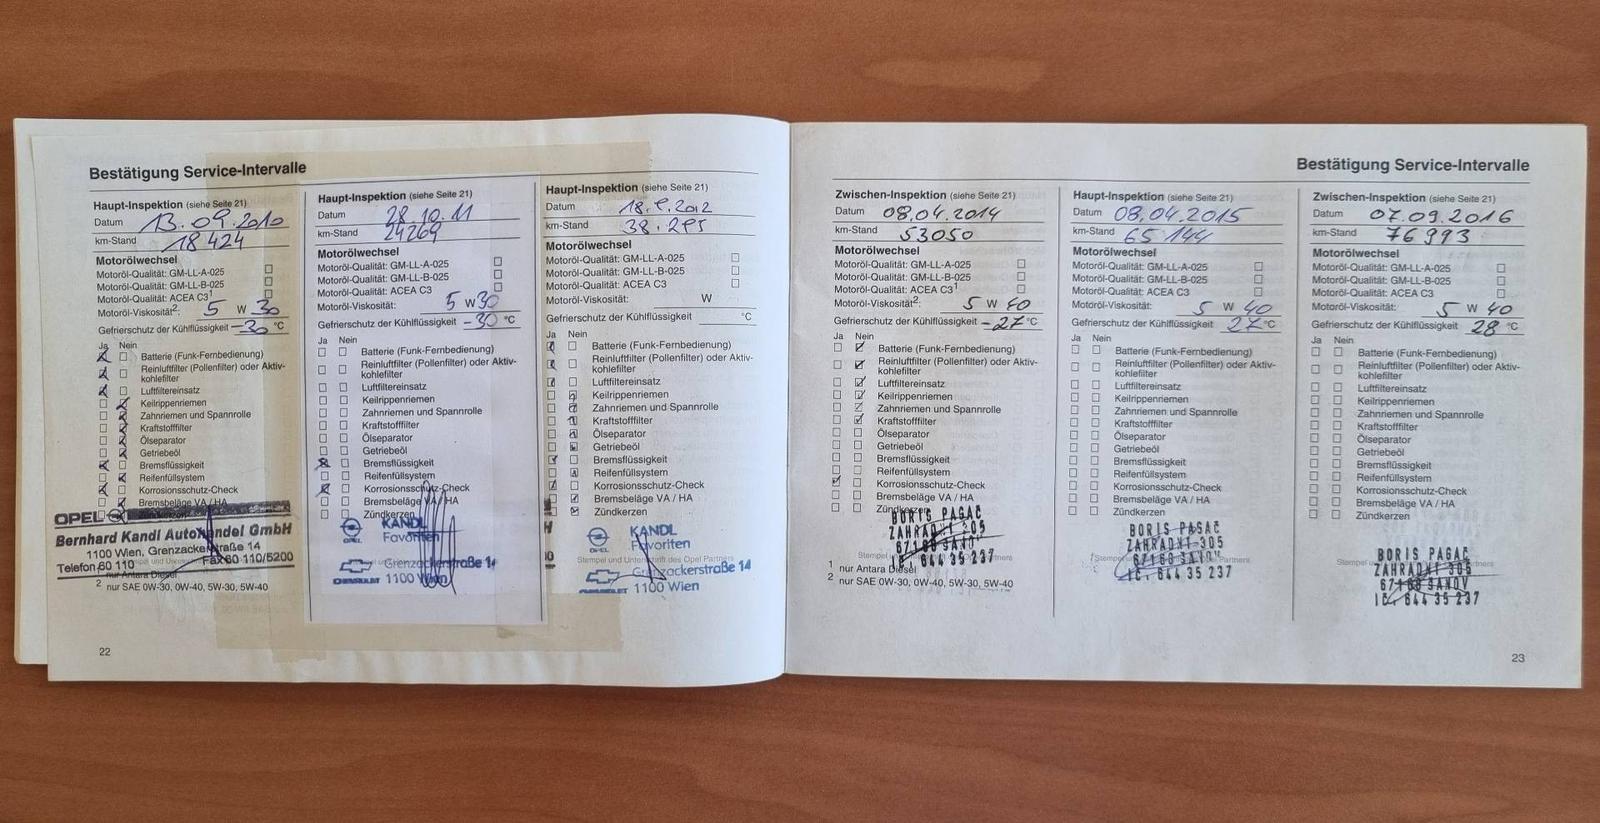 Bestätigung Service-Intervalle
Haupt-Inspektion (siehe Seite 21)
Datum 13.09.2010
km-Stand 18424
Motorölwechsel
Motoröl-Qualität: GM-LL-A-025
Motoröl-Qualität: GM-LL-B-025
Motoröl-Qualität: ACEA C3¹
Motoröl-Viskosität²: 5 W 30
Gefrierschutz der Kühlflüssigkeit -30 °C
Ja Nein
Batterie (Funk-Fernbedienung)
Reinluftfilter (Pollenfilter) oder Aktiv-
kohlefilter
Luftfiltereinsatz
Keilrippenriemen
Zahnriemen und Spannrolle
Kraftstofffilter
Ölseparator
Getriebeöl
Bremsflüssigkeit
Reifenfüllsystem
Korrosionsschutz-Check
Bremsbeläge VA / HA
Zündkerzen
OPEL
Bernhard Kandl Autohandel GmbH
1100 Wien, Grenzackerstraße 14
Telefon 60 110 Fax 60 110/5200
nur Antara Diesel
2 nur SAE 0W-30, 0W-40, 5W-30, 5W-40
22
Haupt-Inspektion (siehe Seite 21)
Datum 28.10.11
km-Stand 24269
Motorölwechsel
Motoröl-Qualität: GM-LL-A-025
Motoröl-Qualität: GM-LL-B-025
Motoröl-Qualität: ACEA C3
Motoröl-Viskosität: 5 W 30
Gefrierschutz der Kühlflüssigkeit -30 °C
Ja Nein
Batterie (Funk-Fernbedienung)
Reinluftfilter (Pollenfilter) oder Aktiv-
kohlefilter
Luftfiltereinsatz
Keilrippenriemen
Zahnriemen und Spannrolle
Kraftstofffilter
Ölseparator
Getriebeöl
Bremsflüssigkeit
Reifenfüllsystem
Korrosionsschutz-Check
Bremsbeläge VA / HA
Zündkerzen
KANDL
OPEL Favoriten
Grenzackerstraße 14
CHEVROLET 1100 Wien
Haupt-Inspektion (siehe Seite 21)
Datum 2012
km-Stand 38.295
Motorölwechsel
Motoröl-Qualität: GM-LL-A-025
Motoröl-Qualität: GM-LL-B-025
Motoröl-Qualität: ACEA C3
Motoröl-Viskosität: W
Gefrierschutz der Kühlflüssigkeit °C
Ja Nein
Batterie (Funk-Fernbedienung)
Reinluftfilter (Pollenfilter) oder Aktiv-
kohlefilter
Luftfiltereinsatz
Keilrippenriemen
Zahnriemen und Spannrolle
Kraftstofffilter
Ölseparator
Getriebeöl
Bremsflüssigkeit
Reifenfüllsystem
Korrosionsschutz-Check
Bremsbeläge VA / HA
Zündkerzen
KANDL
OPEL Favoriten
Stempel und Unterschrift des Opel Partners
Grenzackerstraße 14
CHEVROLET 1100 Wien
Bestätigung Service-Intervalle
Zwischen-Inspektion (siehe Seite 21)
Datum 08.04.2014
km-Stand 53050
Motorölwechsel
Motoröl-Qualität: GM-LL-A-025
Motoröl-Qualität: GM-LL-B-025
Motoröl-Qualität: ACEA C3¹
Motoröl-Viskosität²: 5 W 40
Gefrierschutz der Kühlflüssigkeit -27 °C
Ja Nein
Batterie (Funk-Fernbedienung)
Reinluftfilter (Pollenfilter) oder Aktiv-
kohlefilter
Luftfiltereinsatz
Keilrippenriemen
Zahnriemen und Spannrolle
Kraftstofffilter
Ölseparator
Getriebeöl
Bremsflüssigkeit
Reifenfüllsystem
Korrosionsschutz-Check
Bremsbeläge VA / HA
Zündkerzen
BORIS PAGAČ
ZAHRADNÍ 305
67168 ŠANOV
IČ: 644 35 237
1 nur Antara Diesel
2 nur SAE 0W-30, 0W-40, 5W-30, 5W-40
Haupt-Inspektion (siehe Seite 21)
Datum 08.04.2015
km-Stand 65144
Motorölwechsel
Motoröl-Qualität: GM-LL-A-025
Motoröl-Qualität: GM-LL-B-025
Motoröl-Qualität: ACEA C3
Motoröl-Viskosität: 5 W 40
Gefrierschutz der Kühlflüssigkeit 27 °C
Ja Nein
Batterie (Funk-Fernbedienung)
Reinluftfilter (Pollenfilter) oder Aktiv-
kohlefilter
Luftfiltereinsatz
Keilrippenriemen
Zahnriemen und Spannrolle
Kraftstofffilter
Ölseparator
Getriebeöl
Bremsflüssigkeit
Reifenfüllsystem
Korrosionsschutz-Check
Bremsbeläge VA / HA
Zündkerzen
BORIS PAGAČ
ZAHRADNÍ 305
67168 ŠANOV
IČ: 644 35 237
Zwischen-Inspektion (siehe Seite 21)
Datum 07.09.2016
km-Stand 76993
Motorölwechsel
Motoröl-Qualität: GM-LL-A-025
Motoröl-Qualität: GM-LL-B-025
Motoröl-Qualität: ACEA C3
Motoröl-Viskosität: 5 W 40
Gefrierschutz der Kühlflüssigkeit 28 °C
Ja Nein
Batterie (Funk-Fernbedienung)
Reinluftfilter (Pollenfilter) oder Aktiv-
kohlefilter
Luftfiltereinsatz
Keilrippenriemen
Zahnriemen und Spannrolle
Kraftstofffilter
Ölseparator
Getriebeöl
Bremsflüssigkeit
Reifenfüllsystem
Korrosionsschutz-Check
Bremsbeläge VA / HA
Zündkerzen
BORIS PAGAČ
ZAHRADNÍ 305
67168 ŠANOV
IČ: 644 35 237
23